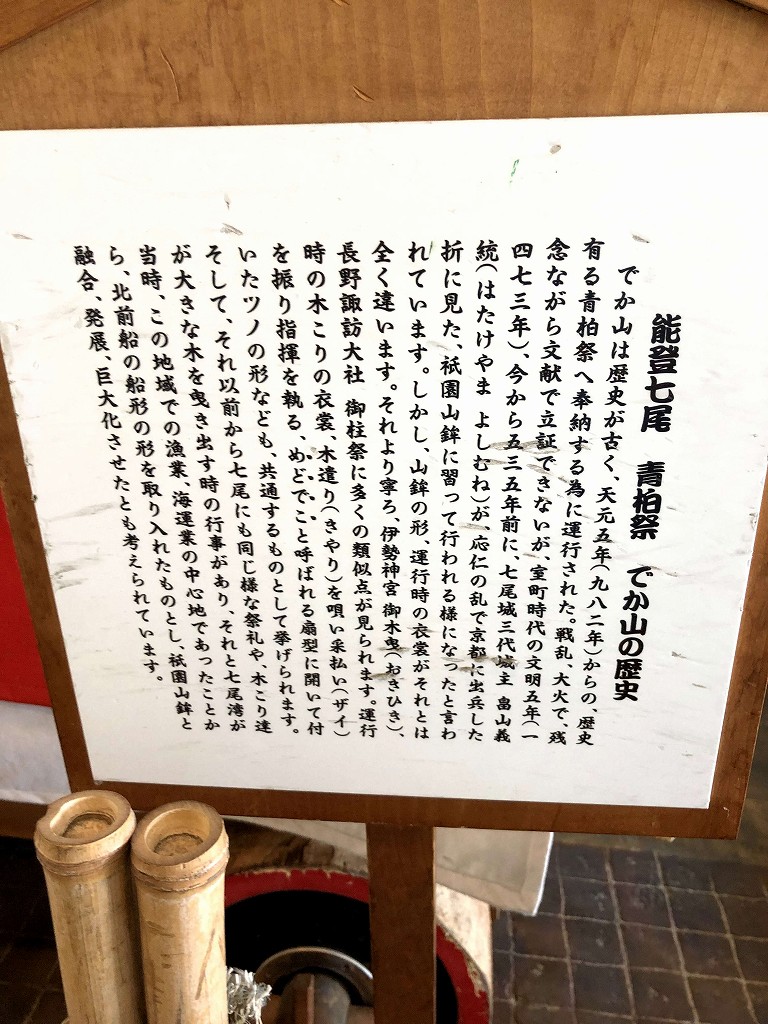 能登七尾　青柏祭　でか山の歴史
でか山は歴史が古く、天元五年(九八二年)からの、歴史
有る青柏祭へ奉納する為に運行された。戦乱、大火で、残
念ながら文献で立証できないが、室町時代の文明五年(一
四七三年)、今から五三五年前に、七尾城三代城主　畠山義
統(はたけやま　よしむね)が、応仁の乱で京都に出兵した
折に見た、祇園山鉾に習って行われる様になったと言わ
れています。しかし、山鉾の形、運行時の衣裳がそれとは
全く違います。それより寧ろ、伊勢神宮　御木曳(おきひき)、
長野諏訪大社　御柱祭に多くの類似点が見られます。運行
時の木こりの衣裳、木遣り(きやり)を唄い采払い(ザイ)
を振り指揮を執る、めどでこと呼ばれる扇型に開いて付
いたツノの形なども、共通するものとして挙げられます。
そして、それ以前から七尾にも同じ様な祭礼や、木こり達
が大きな木を曳き出す時の行事があり、それと七尾湾が
当時、この地域での漁業、海運業の中心地であったことか
ら、北前船の船形の形を取り入れたものとし、祇園山鉾と
融合、発展、巨大化させたとも考えられています。